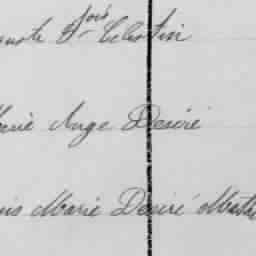 Fois Celestin
Marie Ange Desiré
uis Marie Desiré Math